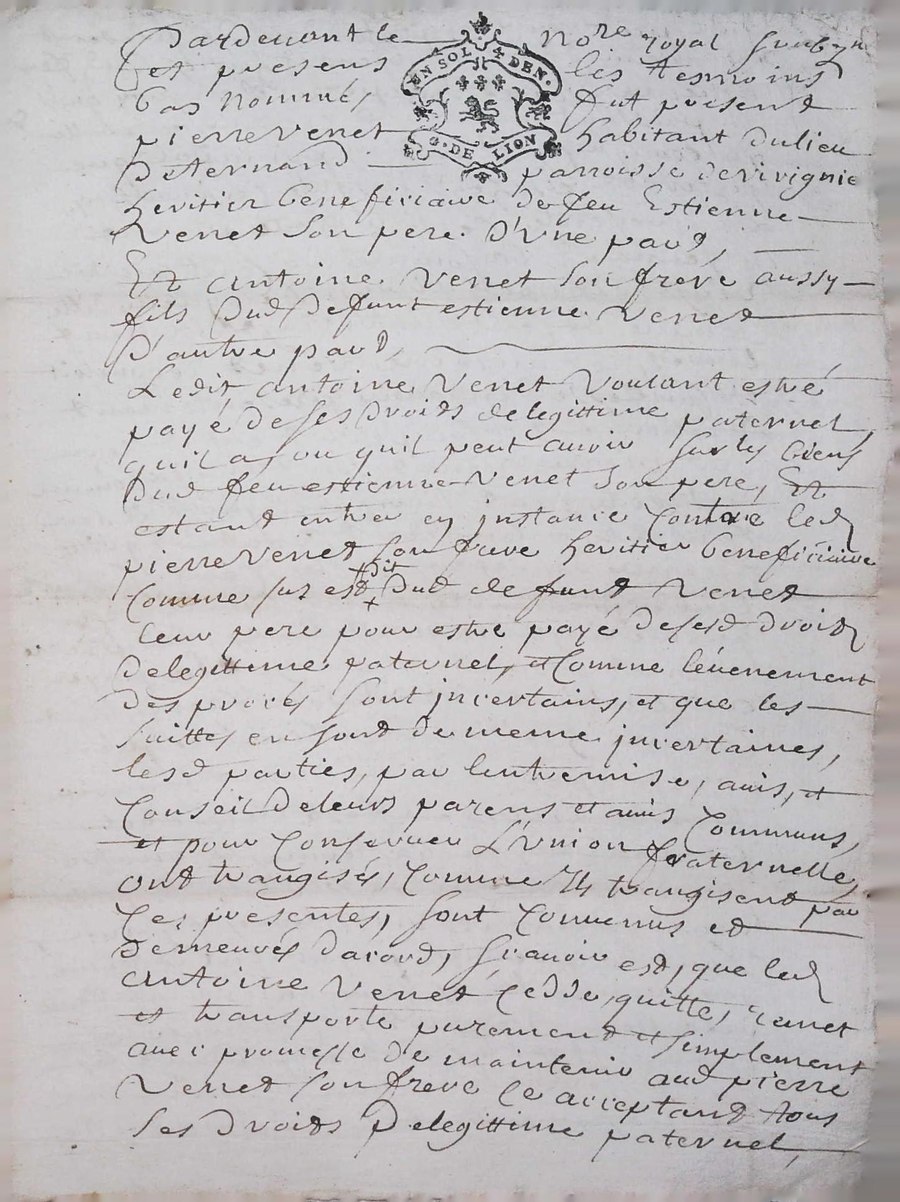 Pardevant le nore royal soubzne
et presens les tesmoins
bas nommés fut present
pierre venet habitant du lieu
de ternand parroisse de rivignie
heritier beneficiaire de feu Estienne
venet son pere. D'Une part,
Et antoine venet son frere aussy
fils dud defunt estienne venet
D'autre part,
Ledit antoine venet voulant estre
payé de ses droits de legittime paternel
quil a, ou quil peut avoir sur les biens
dud feu estienne venet son pere, Et
estant entré en jnstance contre led
pierre venet son frere heritier beneficiaire
comme sus est dit dud defunt venet
leur pere pour estre payé de sesd droits
de legittime paternel, et comme lévenement
des procés sont jncertains, et que les
suittes en sont de meme jncertaines,
lesd parties, par lentremise, avis, et
conseil de leurs parens et amis communs,
et pour conserver L'Union fraternelle,
ont transigés, comme Ils transigent par
ces presentes, sont convenus et
demeurés dacord, scavoir est, que led
antoine venet cedde, quitte, remet
et transporte purement et simplement
avec promesse de maintenir aud pierre
venet son frere ce acceptant tous
ses droits de legittime paternel,
EN SOL 4 DEN.
G. DE LION